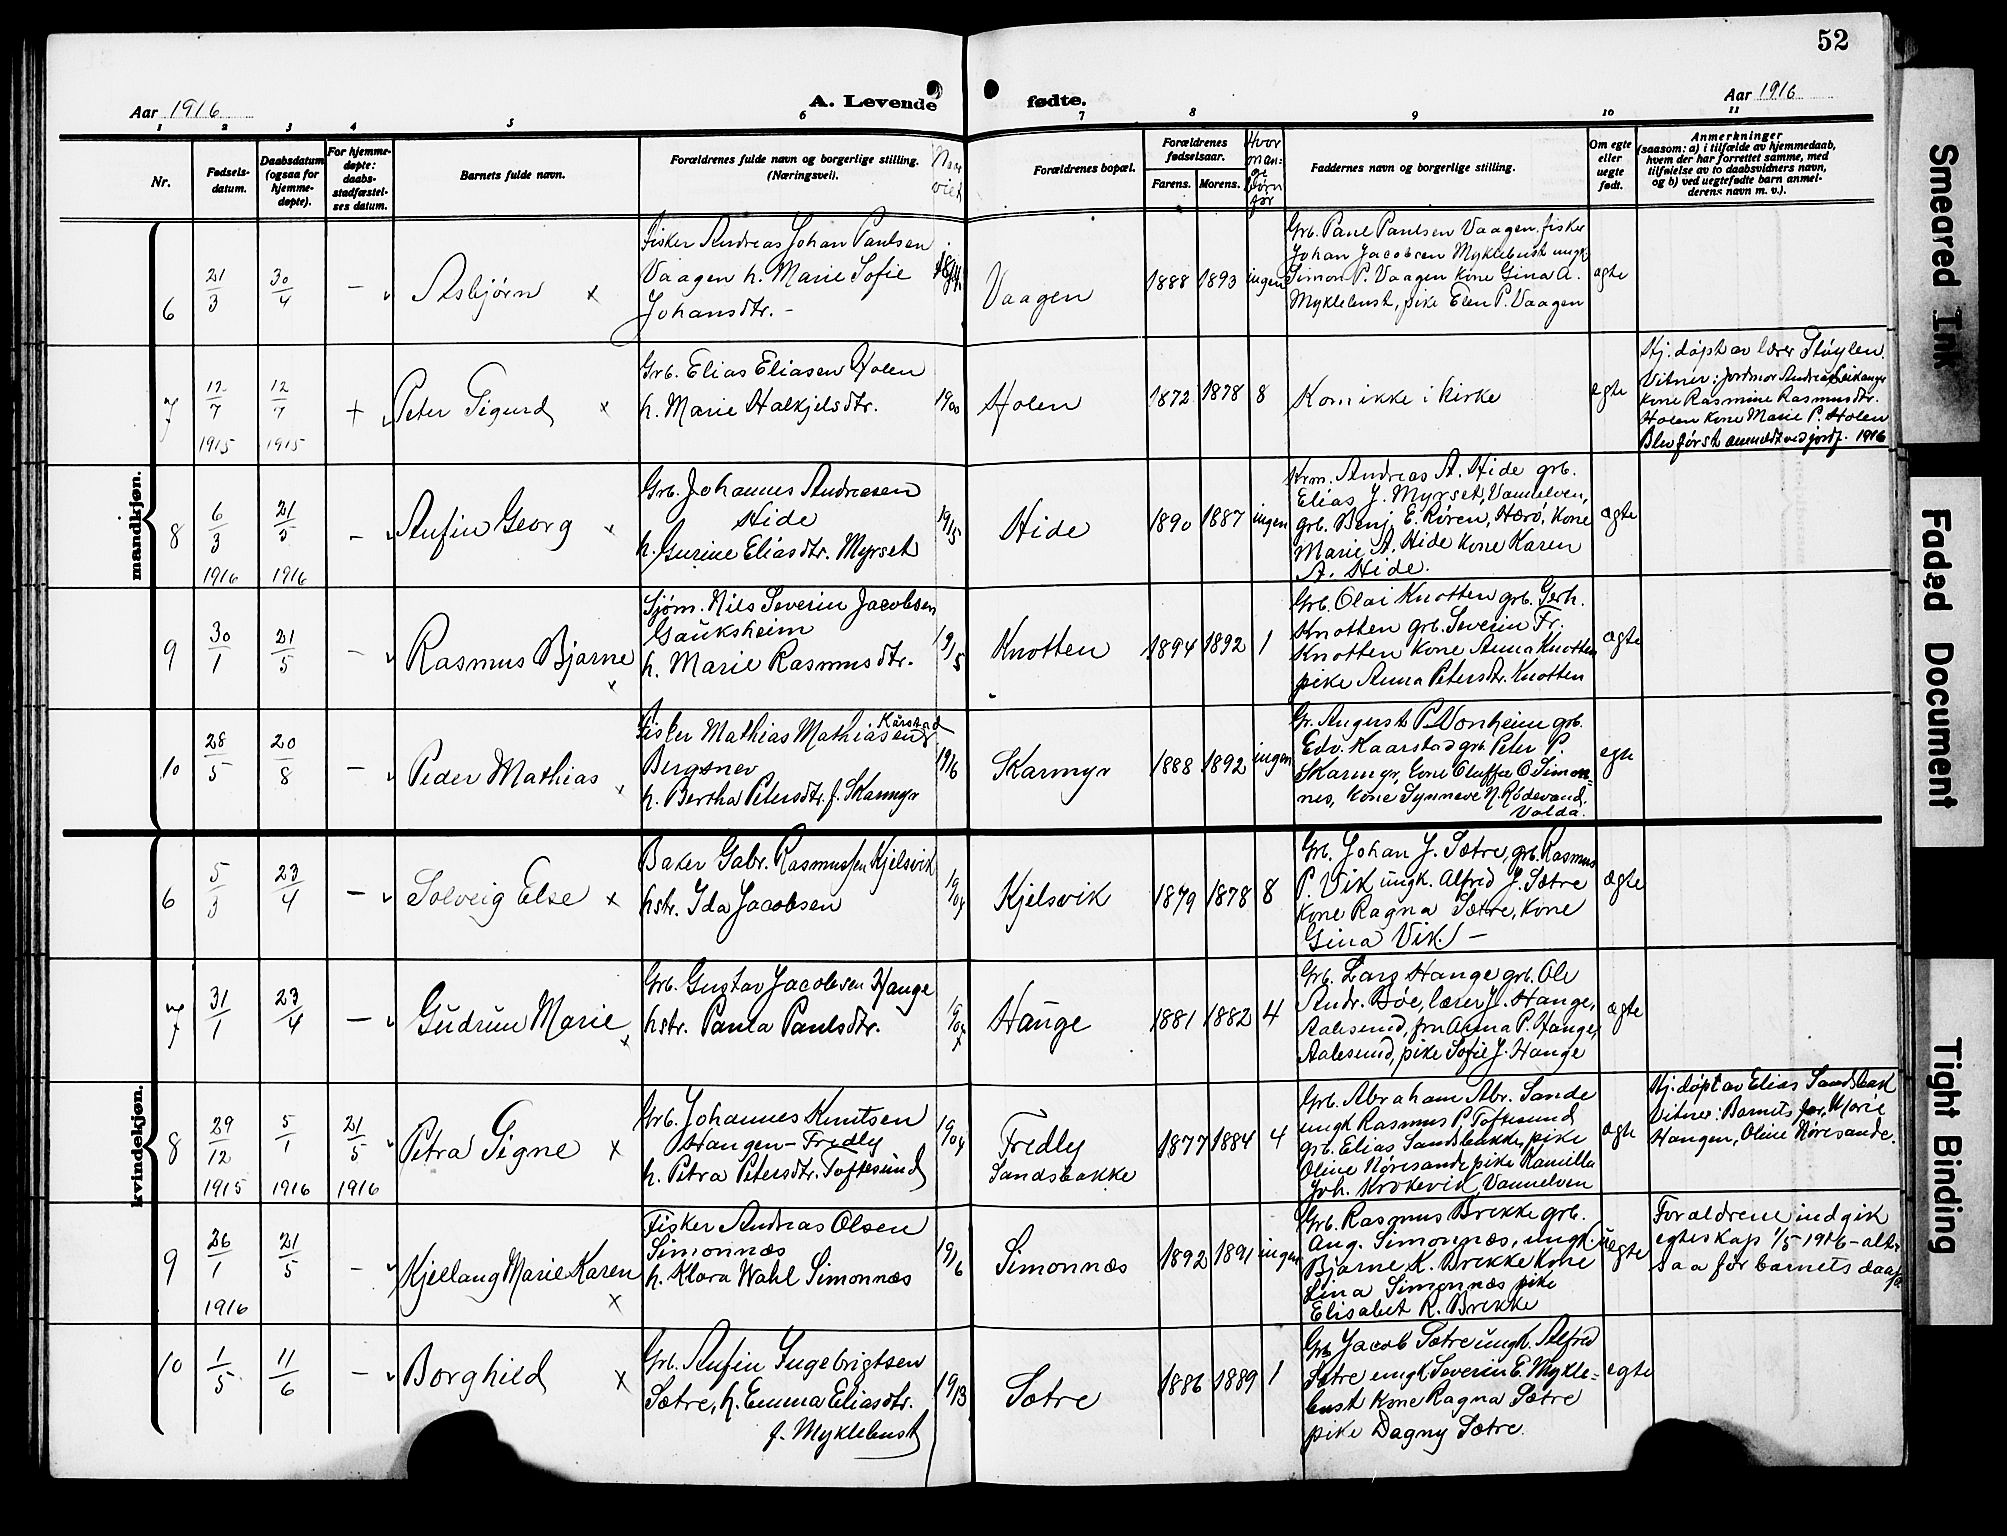 52
Aar 1916
A. Levende fødte.
Aar 1916
1 2 3 4 5 6 7 8 9 10 11
Nr.
Fødsels-
datum.
Daabsdatum
(ogsaa for
hjemme-
døpte).
For hjemme-
døpte:
daabs-
stadfæstel-
ses datum.
Barnets fulde navn.
Forældrenes fulde navn og borgerlige stilling.
(Næringsvei).
Naar
viet
Forældrenes bopæl.
Forældrenes
fødselsaar.
Farens. Morens.
Hvor
man-
ge
børn
før
Faddernes navn og borgerlige stilling.
Om egte
eller
uegte
født.
Anmerkninger
(saasom: a) i tilfælde av hjemmedaab,
hvem der har forrettet samme, med
tilføielse av to daabsvidners navn,
og b) ved uegtefødte barn anmel-
derens navn m. v.).
mandkjøn.
6
21/3
30/4
-
Asbjørn x
Fisker Andreas Johan Paulsen
Vaagen h. Marie Sofie
Johansdtr. -
Vaagen
1888 1893 ingen
Grb. Paul Paulsen Vaagen, fisker
Johan Jacobsen Myklebust ungk
Simon P. Vaagen kone Gina A.
Myklebust, pike Elen P. Vaagen
ægte
7
12/7
1915
12/7
1915
+
Peter Sigurd x
Grb. Elias Eliasen Holen
h. Marie Halkjelsdtr.
1900
Holen
1872 1878 8
Kom ikke i kirke
egte
Hj. døpt av lærer Støylen.
Vitner: Jordmor Andrea Leikanger
kone Rasmine Rasmusdtr.
Holen kone Marie P. Holen
Blev først anmeldt ved jordf. 1916
8
6/3
1916
21/5
1916
-
Anfin Georg x
Grb. Johannes Andreasen
Hide
h. Gurine Eliasdtr. Myrset
1915
Hide
1890 1887 ingen
Krm. Andreas A. Hide grb.
Elias J. Myrset, Vannelven,
grb. Benj. E. Røren, Herø, kone
Marie A. Hide kone Karen
A. Hide.
ægte
9
30/1
21/5
-
Rasmus Bjarne x
Sjøm. Nils Severin Jacobsen
Gauksheim
h. Marie Rasmusdtr.
1915
Knotten
1894 1892 1
Grb. Olai Knotten grb. Gerh.
Knotten grb. Severin Fr.
Knotten kone Anna Knotten
pike Anna Petersdtr. Knotten
ægte
10
28/5
20/8
-
Peder Mathias x
Fisker Mathias Mathiasen Kårstad
Bergsnev
h. Bertha Petersdtr. f. Skarmyr
1916
Skarmyr
1888 1892 ingen
Gr. August P. Vonheim grb.
Edv. Kaarstad grb. Peter P.
Skarmyr, kone Oluffa O. Simon-
nes, kone Synneve N. Rødevand.
Volda.
egte
kvindekjøn.
6
5/3
23/4
-
Solveig Else x
Baker Gabr. Rasmussen Kjelsvik
hstr. Ida Jacobsen
1904
Kjelsvik
1879 1878 8
Grb. Johan J. Sætre, grb. Rasmus
P. Vik ungk. Alfred J. Sætre
kone Ragna Sætre, kone
Gina Vik. -
ægte
7
31/1
23/4
-
Gudrun Marie x
Grb. Gustav Jacobsen Hauge
hstr. Paula Paulsdtr.
Hauge
1881 1882 4
Grb. Lars Hauge grb. Ole
Andr. Bøe, lærer J. Hauge,
Aalesund, fru Anna P. Hauge,
Aalesund, pike Sofie J. Hauge
ægte
8
29/12
1915
5/1
1916
21/5
1916
Petra Signe x
Grb. Johannes Knutsen
Haugen - Fredly
h. Petra Petersdtr. Toftesund
1904
Fredly
Sandsbakke
1877 1884 4
Grb. Abraham Abr. Sande
ungk Rasmus P. Toftesund
grb. Elias Sandsbakke, pike
Oline Nøresande pike Kamilla
Joh. Krokevik, Vannelven
ægte
Hj. døpt av Elias Sandsbak
Vitner: Barnets far, Marie
Haugen, Oline Nøresande.
9
26/1
1916
21/5
-
Kjellaug Marie Karen x
Fisker Andreas Olsen
Simonnæs
h. Klara Wahl Simonnæs
1916
Simonnæs
1892 1891 ingen
Grb. Rasmus Brekke grb.
Aug. Simonnæs, ungk.
Bjarne K. Brekke kone
Lina Simonnæs pike
Elisabet R. Brekke
uegte
Forældrene indgik
egteskap 1/5 1916 - alt-
saa før barnets daab
10
1/5
11/6
-
Borghild x
Grb. Anfin Ingebrigtsen
Sætre, h. Emma Eliasdtr.
f. Myklebust
1913
Sætre
1886 1889 1
Grb Jacob Sætre ungk. Alfred
Sætre ungk Severin E. Mykle-
bust kone Ragna Sætre
pike Dagny Sætre.
egte
Smeared Ink
Faded Document
Tight Binding